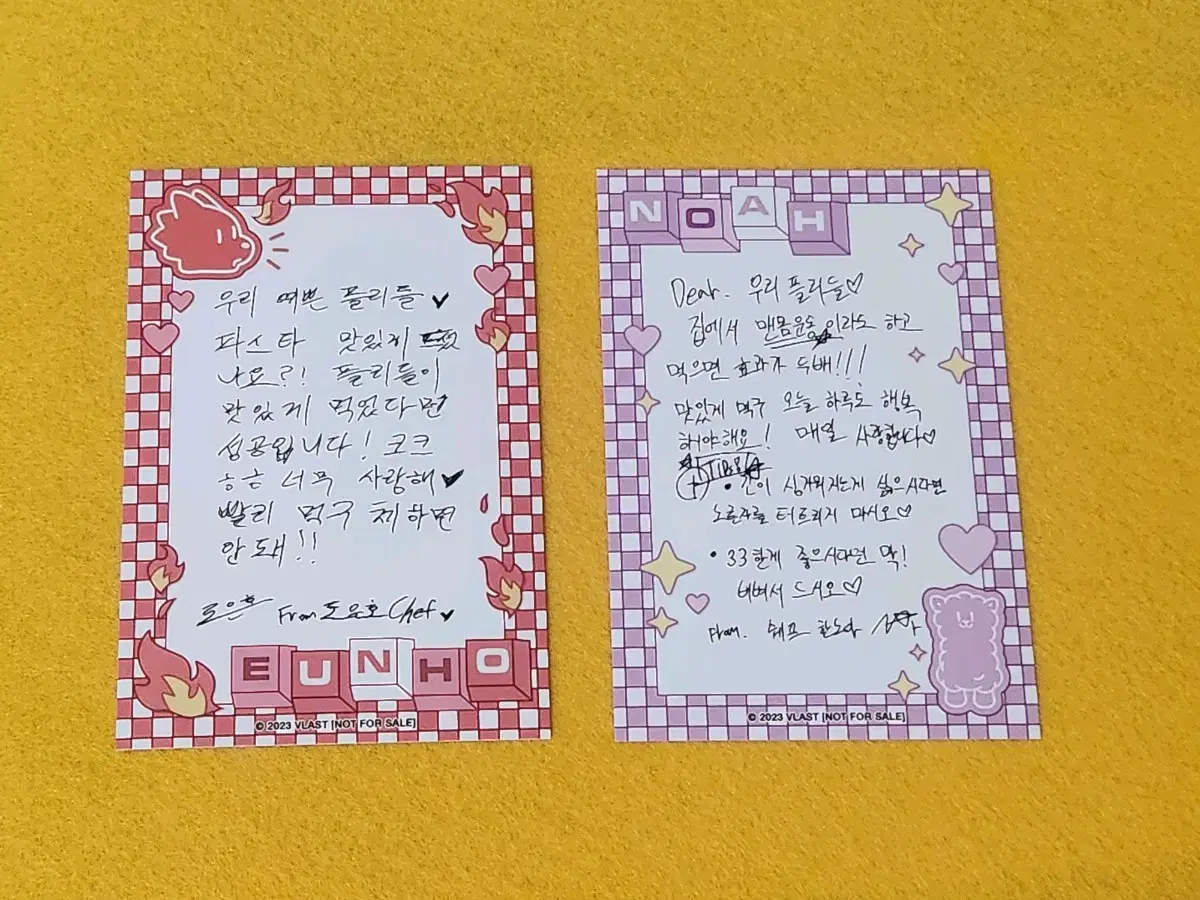 우리 예쁜 플리들
파스타 맛있게 드셨
나요?! 플리들이
맛있게 먹었다면
성공입니다! 코크
ㅎㅎ 너무 사랑해
빨리 먹구 체하면
안돼!!
From 도은호 Chef
EUNHO
© 2023 VLAST [NOT FOR SALE]
NOAH
Dear. 우리 플리들♡
집에서 맨몸운동이라도 하고
먹으면 효과가 두배!!!
맛있게 먹구 오늘 하루도 행복
해야해요! 매일 사랑합니다♡
• 간이 싱거워지는게 싫으시다면
노른자를 터트리지 마시오♡
• 33한게 좋으시다면 막!
비벼서 드시오♡
From. 쉐프 한노아
© 2023 VLAST [NOT FOR SALE]